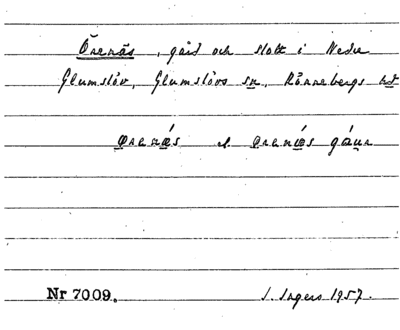 Örenäs, gård och slott i Nedre
Glumslöv, Glumslövs sn, Rönnebergs hd
œrenæ´s el. œrenæ´s gáuṛ
Nr 7009. I. Ingers 1957.